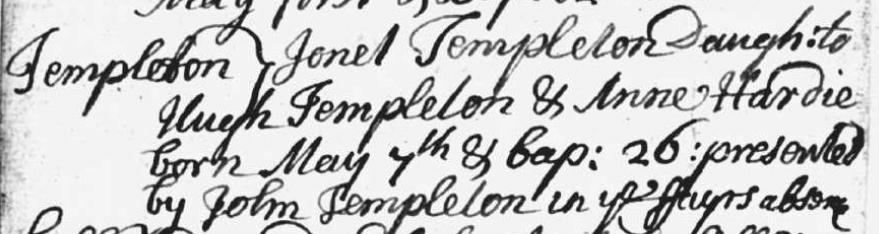 Templeton } Jonet Templeton Daugh:to
Hugh Templeton & Anne Hardie
born May 7th & bap: 26: presented
by John Templeton in ye ffayrs absence